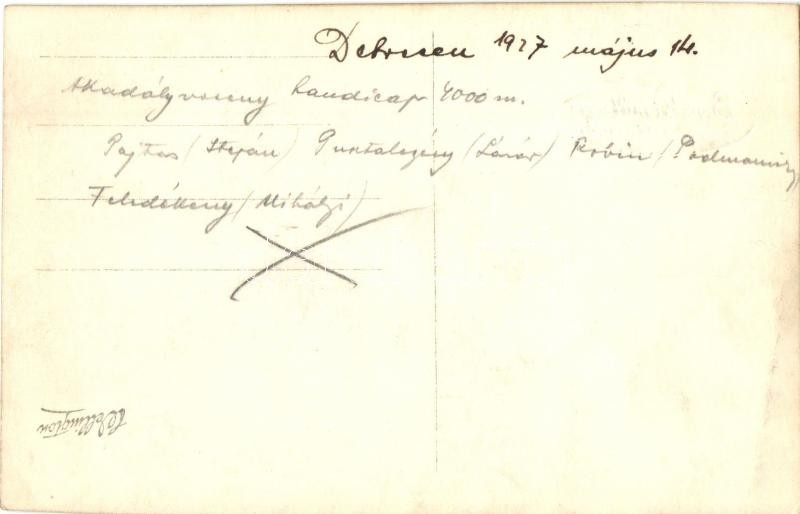 Debrecen 1927 május 14.
Akadályverseny handicap 4000 m.
Pajtás (Stefán) Pusztalegény (Lázár) Robin (Podmaniczy
Feledékeny (Mihályi)
Wellington